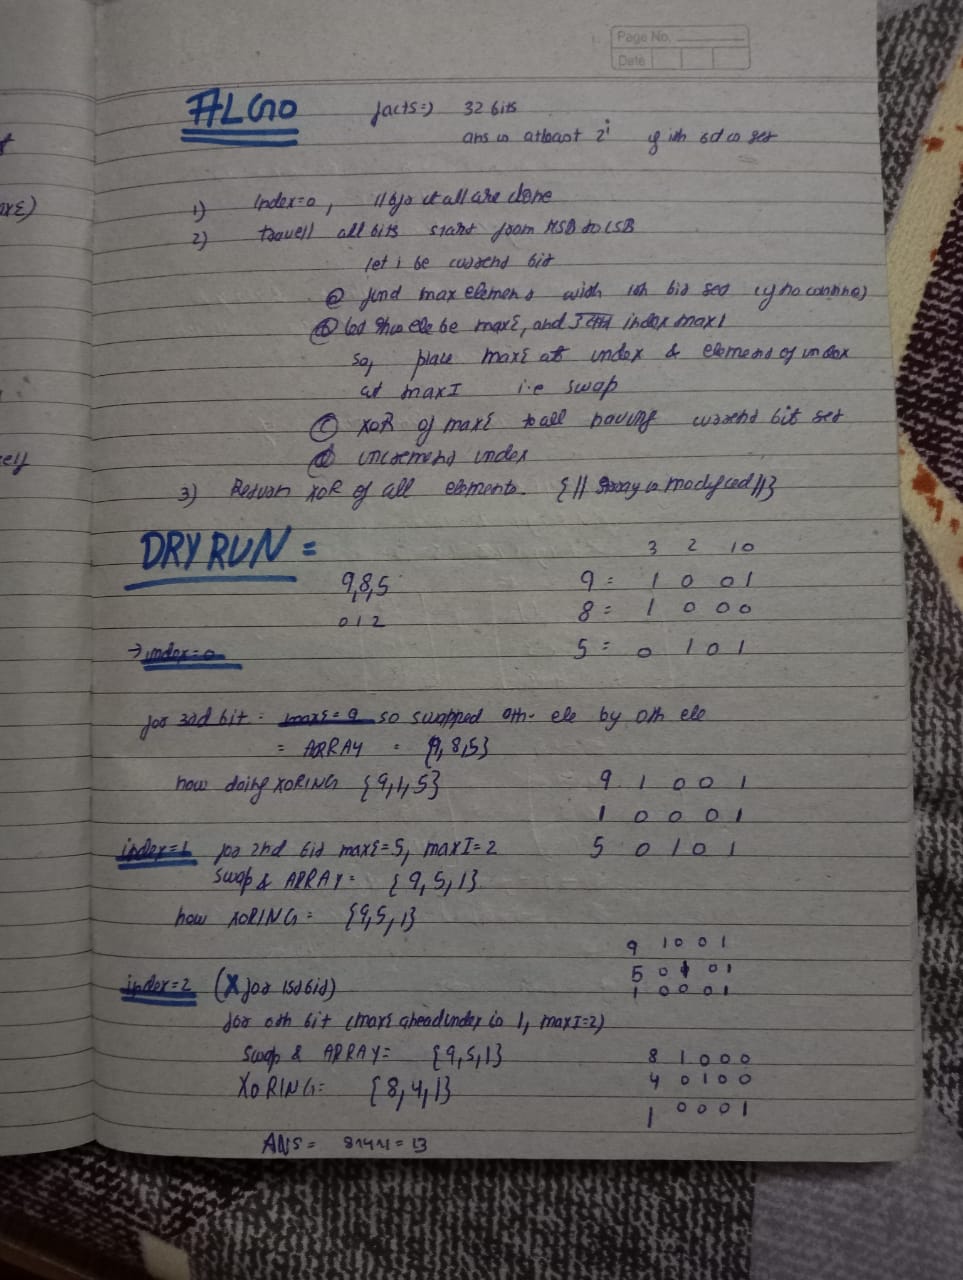 Page No.
Date
ALGO facts => 32 bits
ans is atleast 2^i if ith bit is set
axE)
1) index=0, // bfr it all are done
2) travell all bits start from MSB to LSB
let i be current bit
ⓐ find max element with ith bit set (if no continue)
ⓑ let this ele be maxE, and index maxI
so, place maxE at index & element of index
at maxI i.e swap
ⓒ XOR of maxE to all having current bit set
ⓓ increment index
3) Return XOR of all elements. {// array is modified //}
DRY RUN =
3 2 1 0
9,8,5
9 = 1 0 0 1
0 1 2
8 = 1 0 0 0
→ index=0
5 = 0 1 0 1
for 3rd bit : maxE = 9 so swapped 0th ele by 0th ele
= ARRAY = {9,8,5}
now doing XORING {9,1,5}
9 1 0 0 1
1 0 0 0 1
index=1 for 2nd bit maxE=5, maxI=2
5 0 1 0 1
swap & ARRAY = {9,5,1}
now XORING = {9,5,1}
9 1 0 0 1
5 0 1 0 1
1 0 0 0 1
index=2 (X for 1st bit)
for 0th bit (maxE ahead index is 1, maxI=2)
swap & ARRAY = {9,5,1}
8 1 0 0 0
XORING = {8,4,1}
4 0 1 0 0
1 0 0 0 1
ANS = 8^4^1 = 13